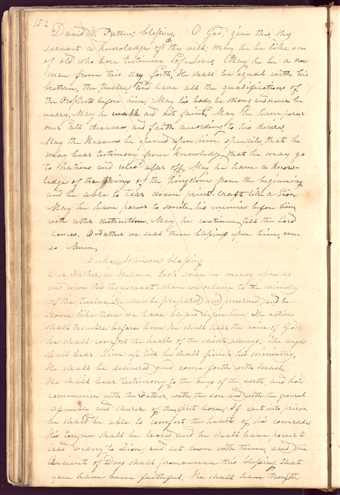 152
David W. Patten's blessing, O God, give this, thy
servant a knowledge of thy will; may he be like one
of old who bore testimony of Jesus. May he be a new
man from this day forth. He shall be equal with his
brethren, the twelve, and have all the qualifications of
the Prophets before him. May his body be strong and never be
weary. May he walk and not faint. May he have power
over all diseases, and faith according to his desires.
May the Heavens be opened upon him speedily, that he
may bear testimony from knowledge, that he may go
to Nations and isles afar off. May he have a know-
ledge of the things of the kingdom from the beginning
and be able to tear down priest craft like a Lion.
May he have power to smite his enemies before him
with utter destruction. May he continue till the Lord
comes. O Father we seal these blessings upon him, even
so Amen.
Luke Johnson's blessing
Our Father in Heaven look down in mercy upon us
and upon this thy servant whom we ordain to the ministry
of the twelve. He shall be prepared and preserved and be
like those we have blessed before him. The nations
shall tremble before him. He shall hear the voice of God;
he shall comfort the hearts of the saints always. The angels
shall bear him up till he shall finish his ministry.
He shall be delivered and come forth with Israel.
He shall bear testimony to the kings of the earth and hold
communion with the Father, with the son and with the general
assembly and church of the first born. If cast into prison
he shall be able to comfort the hearts of his comrades.
His tongue shall be loosed and he shall have power to
lead many to Zion, and sit down with them; and the
Ancient of Days shall pronounce this blessing, that
you have been faithful. He shall have strength